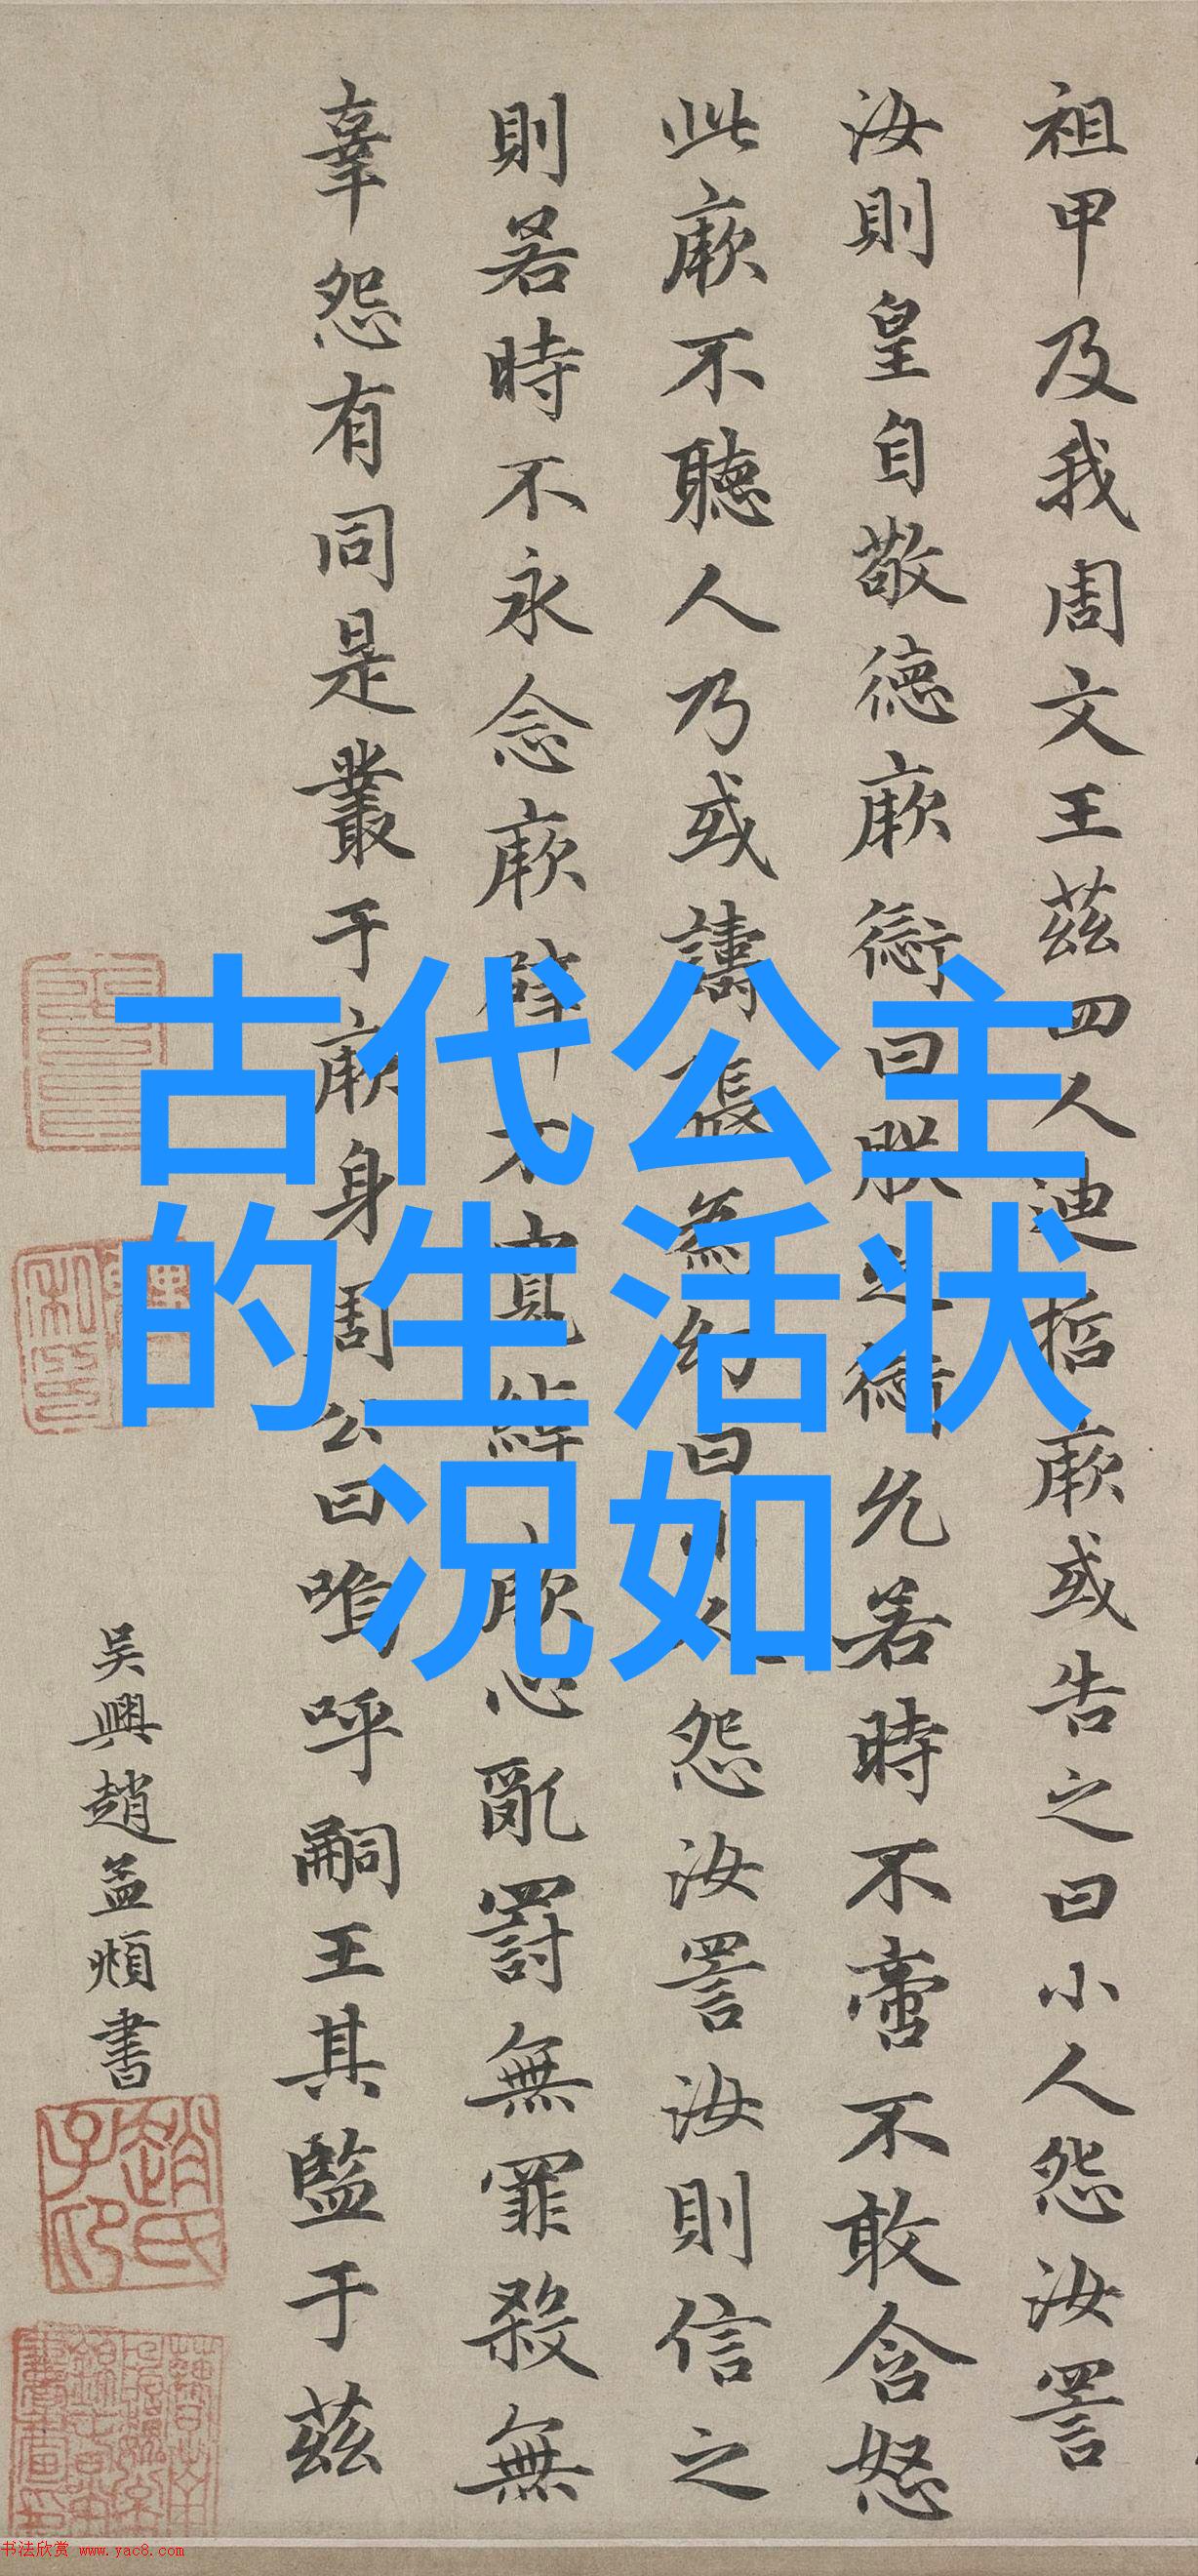 祖甲及我周文王茲四人迪哲厥或告之曰小人怨汝詈
汝則皇自敬德厥愆曰朕之愆允若時不啻不敢含怒
此厥不聽人乃或譸張為幻曰小人怨汝詈汝則信之
則若時不永念厥辟不寬綽厥心亂罰無罪殺無
辜怨有同是叢于厥身周公曰嗚呼嗣王其監于茲
吳興趙孟頫書
趙氏子昂
古代公主
的生活状
况如
书法欣赏 www.yac8.com